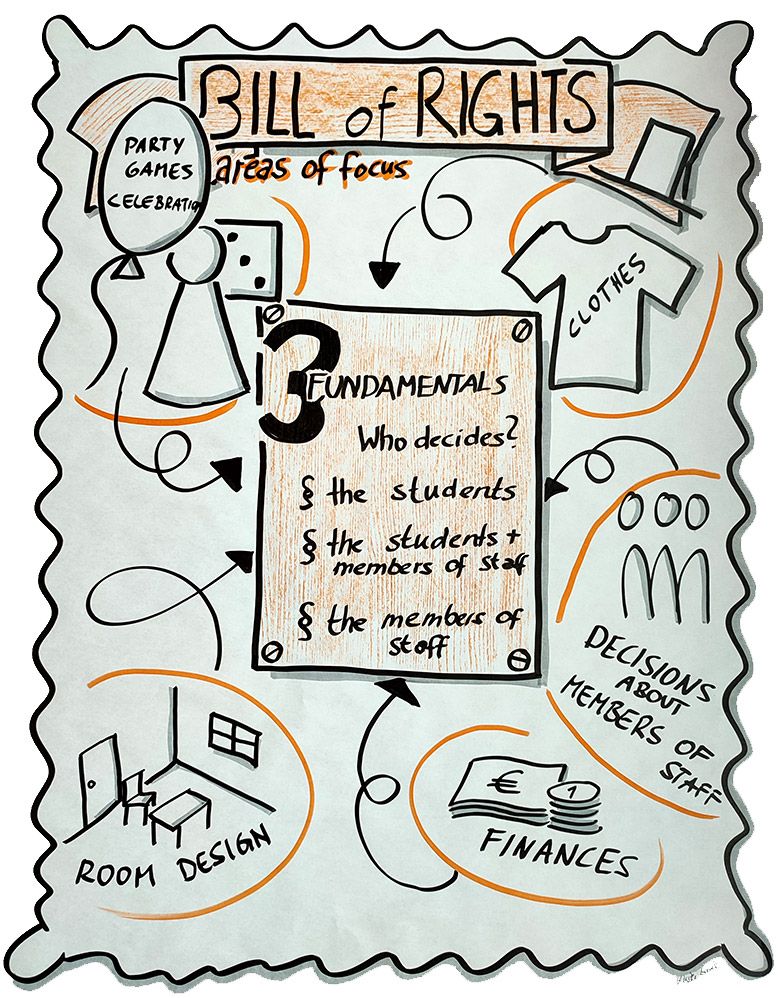 BILL of RIGHTS
areas of focus
PARTY
GAMES
CELEBRATION
CLOTHES
3
FUNDAMENTALS
Who decides?
§ the students
§ the students +
members of staff
§ the members of
staff
DECISIONS
ABOUT
MEMBERS OF
STAFF
ROOM DESIGN
€
1
FINANCES